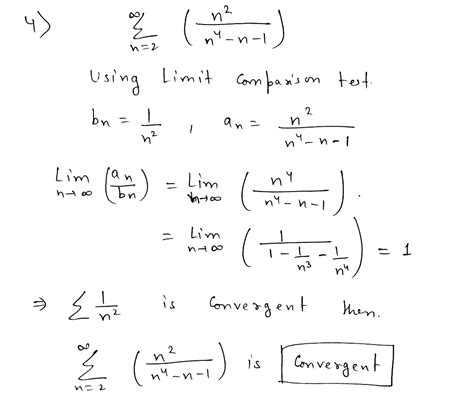 4) ∞ Σ n=2 ( n² / n⁴-n-1 )
Using Limit Comparison test.
bn = 1/n² , an = n² / n⁴-n-1
Lim n→∞ (an/bn) = Lim n→∞ ( n⁴ / n⁴-n-1 ).
= Lim n→∞ ( 1 / 1 - 1/n³ - 1/n⁴ ) = 1
⇒ Σ 1/n² is Convergent then.
∞ Σ n=2 ( n² / n⁴-n-1 ) is Convergent